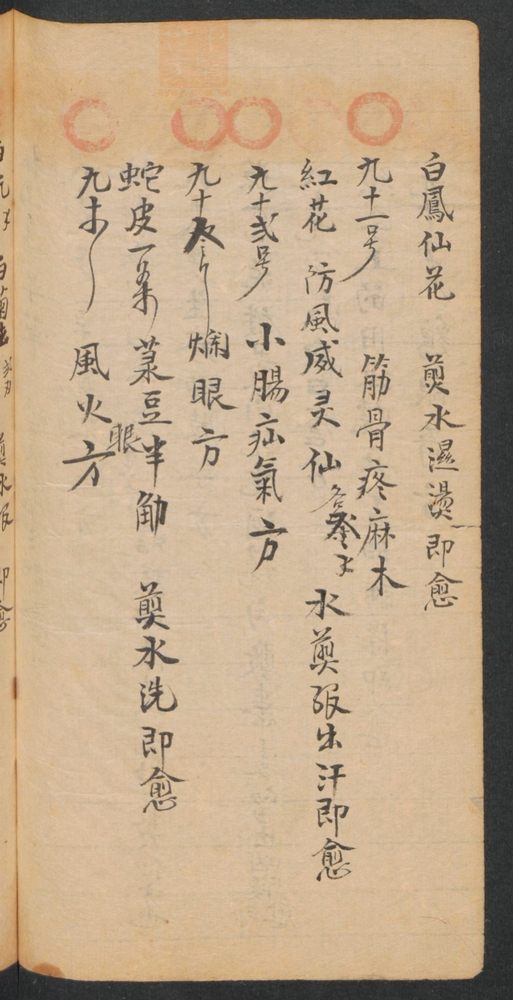 白鳳仙花 煎水濕燙即愈
九十一号 筋骨疼麻木
紅花 防風威灵仙各叁 水煎服出汗即愈
九十弍号 小腸疝氣方
九十叁 爛眼方
蛇皮一条 菉豆半觔 煎水洗即愈
九十 風火眼方
白菊
煎水服 即愈